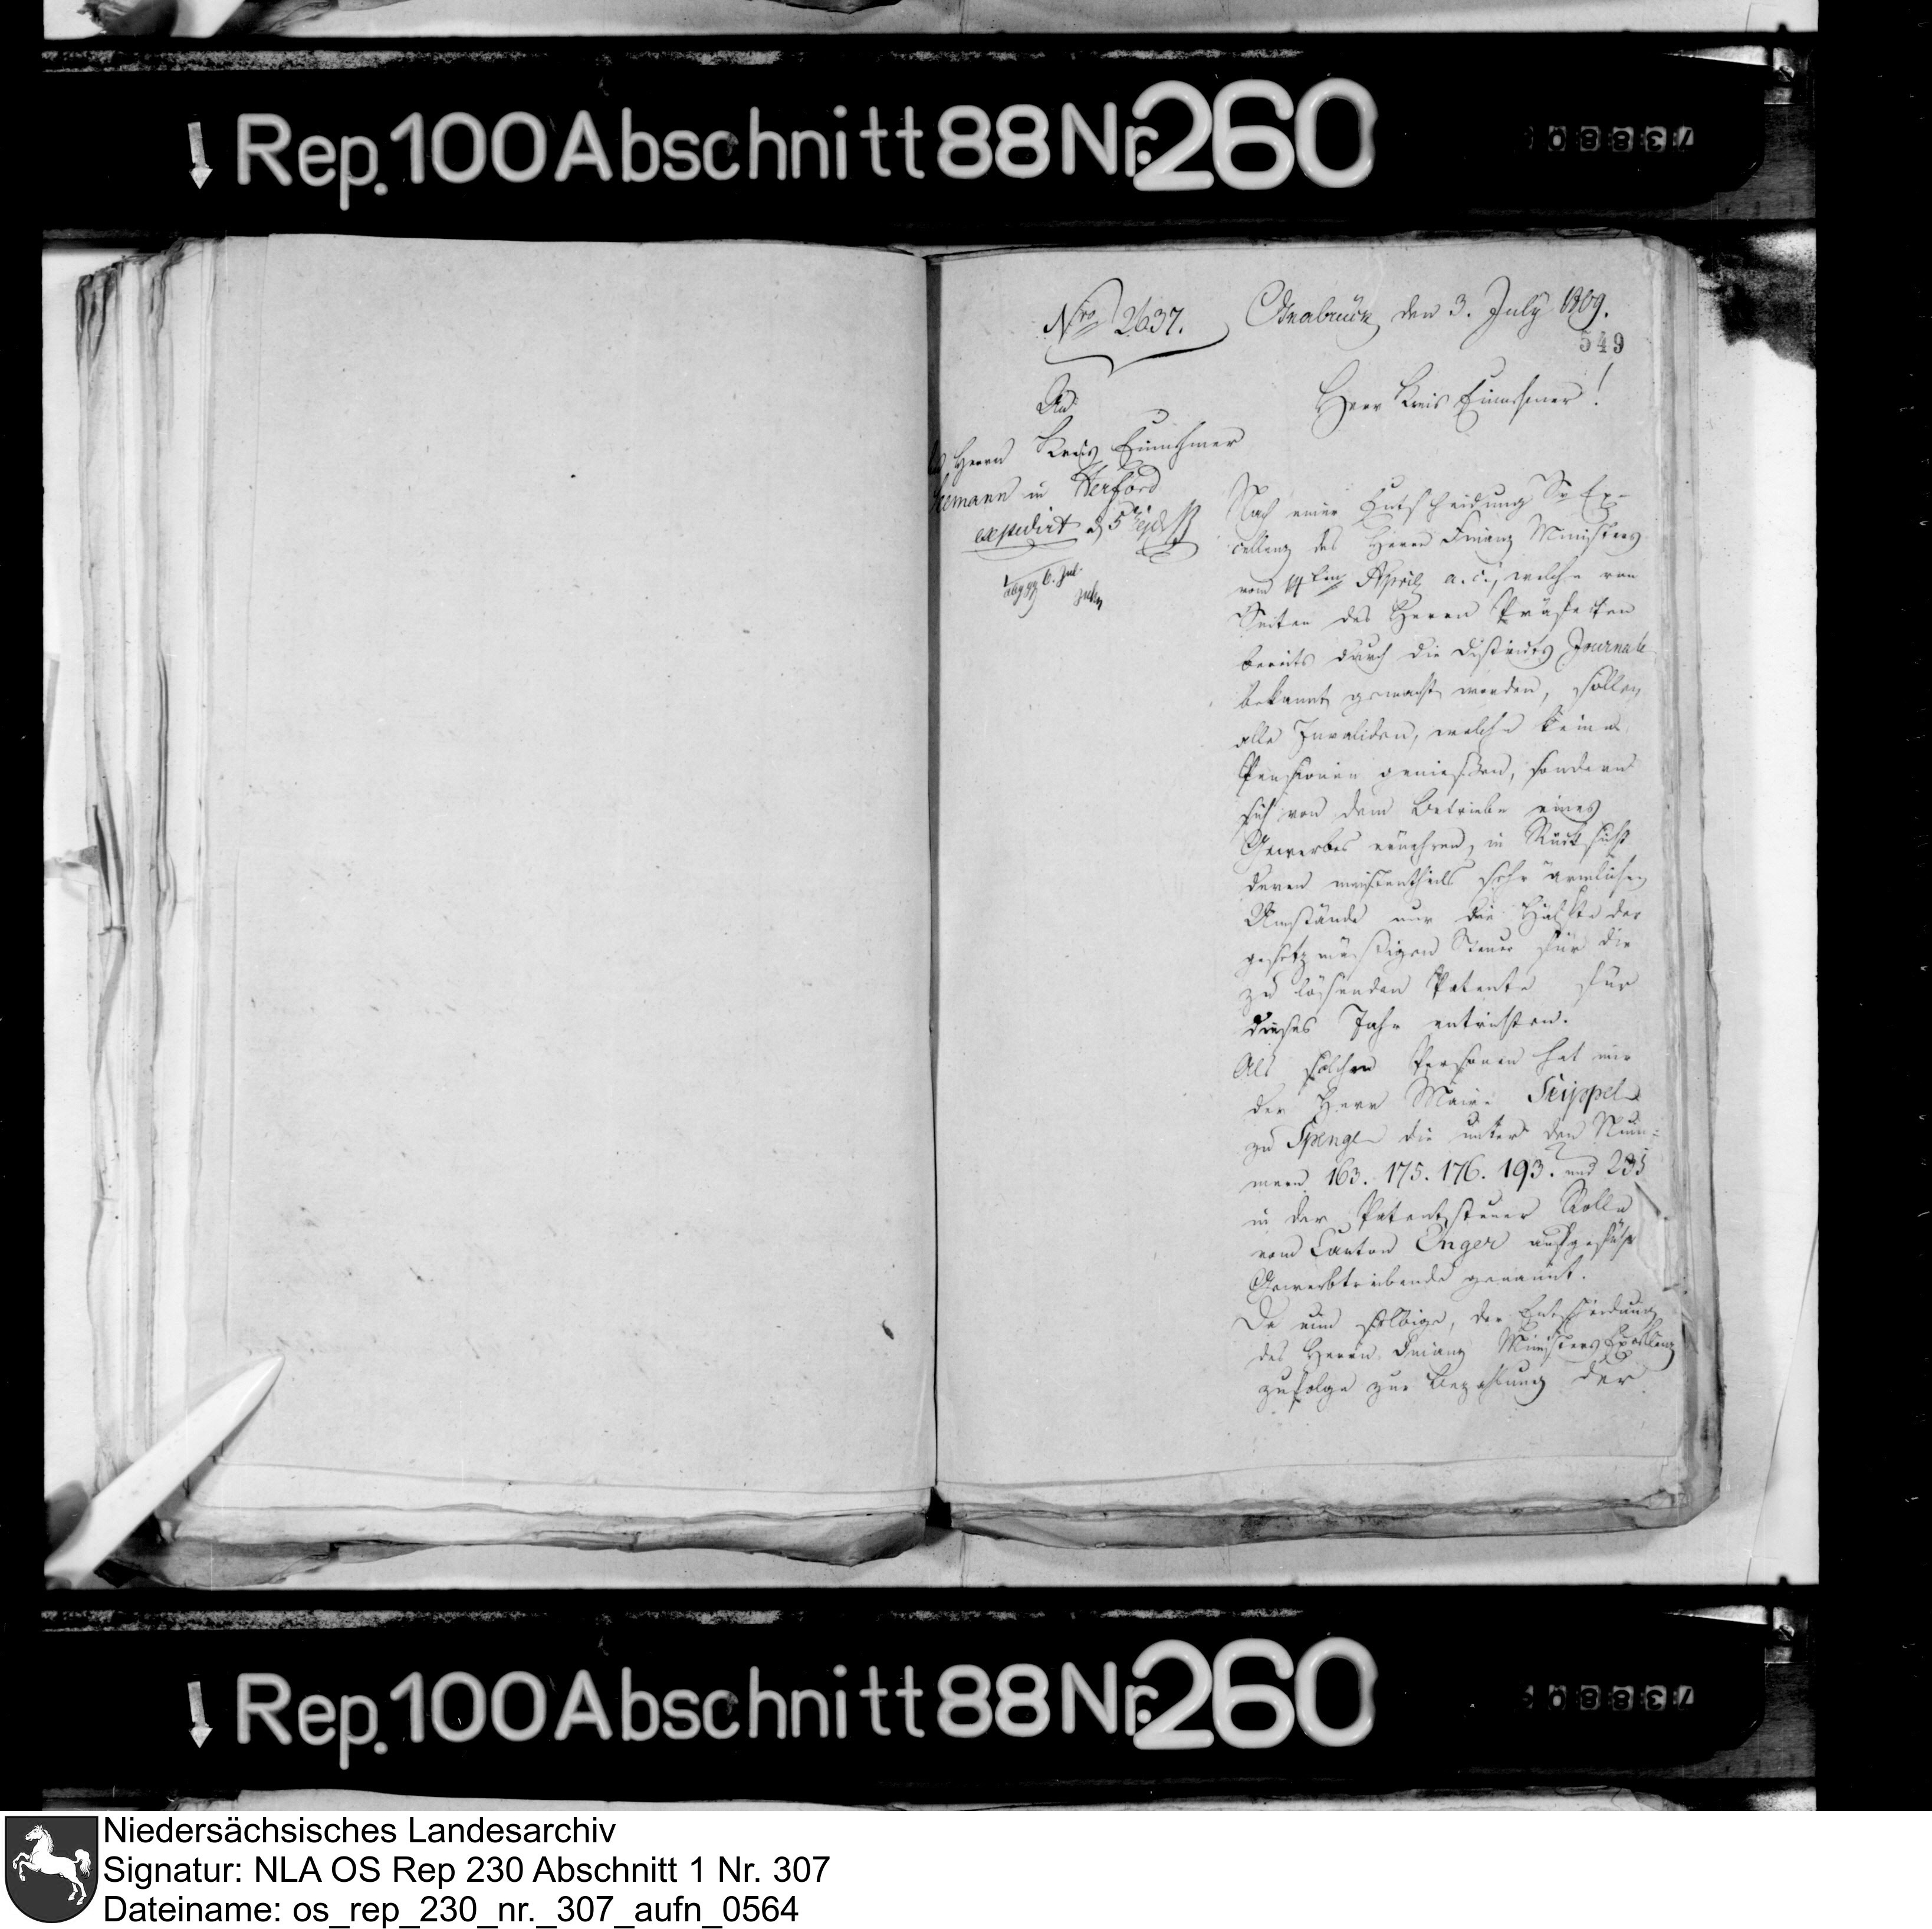 Rep. 100 Abschnitt 88 Nr. 260
73880
Nro 2637.
Osnabrück den 3. July 1809.
549
An
Herrn Kreis Einnehmer
in Herford
expedirt d 5
6. Jul.
Herr Kreis Einnehmer!
Nach einer Entscheidung Sr Ex-
cellenz des Herrn Finanz Ministers
vom 14ten April a. c., welche von
Seiten des Herrn Präfekten
bereits durch die Districts Journale
bekannt gemacht worden, sollen
alle Invaliden, welche keine
Pensionen genießen, sondern
sich von dem Betriebe eines
Gewerbes ernähren, in Rücksicht
deren meistentheils sehr ärmlichen
Umstände nur die Hälfte der
gesetzmäßigen Steuer für die
zu lösenden Patente für
dieses Jahr entrichten.
Als solchen Personen hat mir
der Herr Maire Seippel
zu Spenge die unter den Num-
mern 163. 175. 176. 193. und 235
in der Patentsteuer Rolle
vom Canton Enger aufgeführ
Gewerbtreibende genannt.
Da nun selbige, der Entscheidung
des Herrn Finanz Ministers Excellenz
zufolge zur Bezahlung der
Rep. 100 Abschnitt 88 Nr. 260
73880
Niedersächsisches Landesarchiv
Signatur: NLA OS Rep 230 Abschnitt 1 Nr. 307
Dateiname: os_rep_230_nr._307_aufn_0564